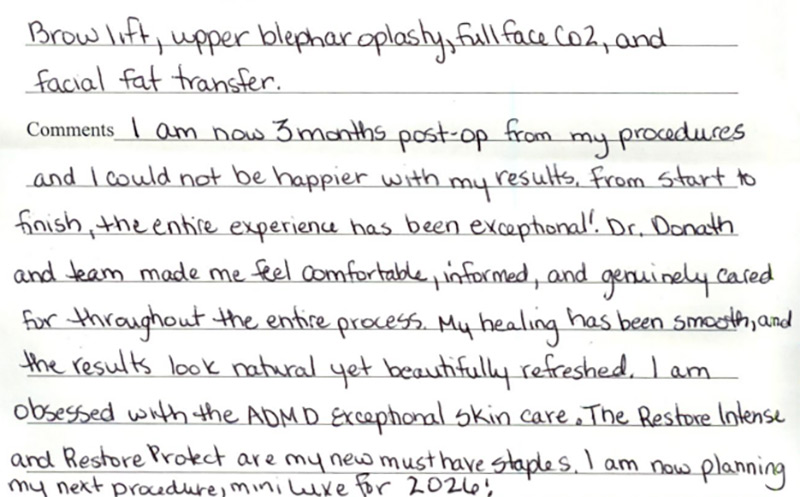 Brow lift, upper blepharoplasty, full face CO2, and
facial fat transfer.
Comments I am now 3 months post-op from my procedures
and I could not be happier with my results. From start to
finish, the entire experience has been exceptional! Dr. Donath
and team made me feel comfortable, informed, and genuinely cared
for throughout the entire process. My healing has been smooth, and
the results look natural yet beautifully refreshed. I am
obsessed with the ADMD Exceptional skin care. The Restore Intense
and Restore Protect are my new must have staples. I am now planning
my next procedure, mini luxe for 2026!